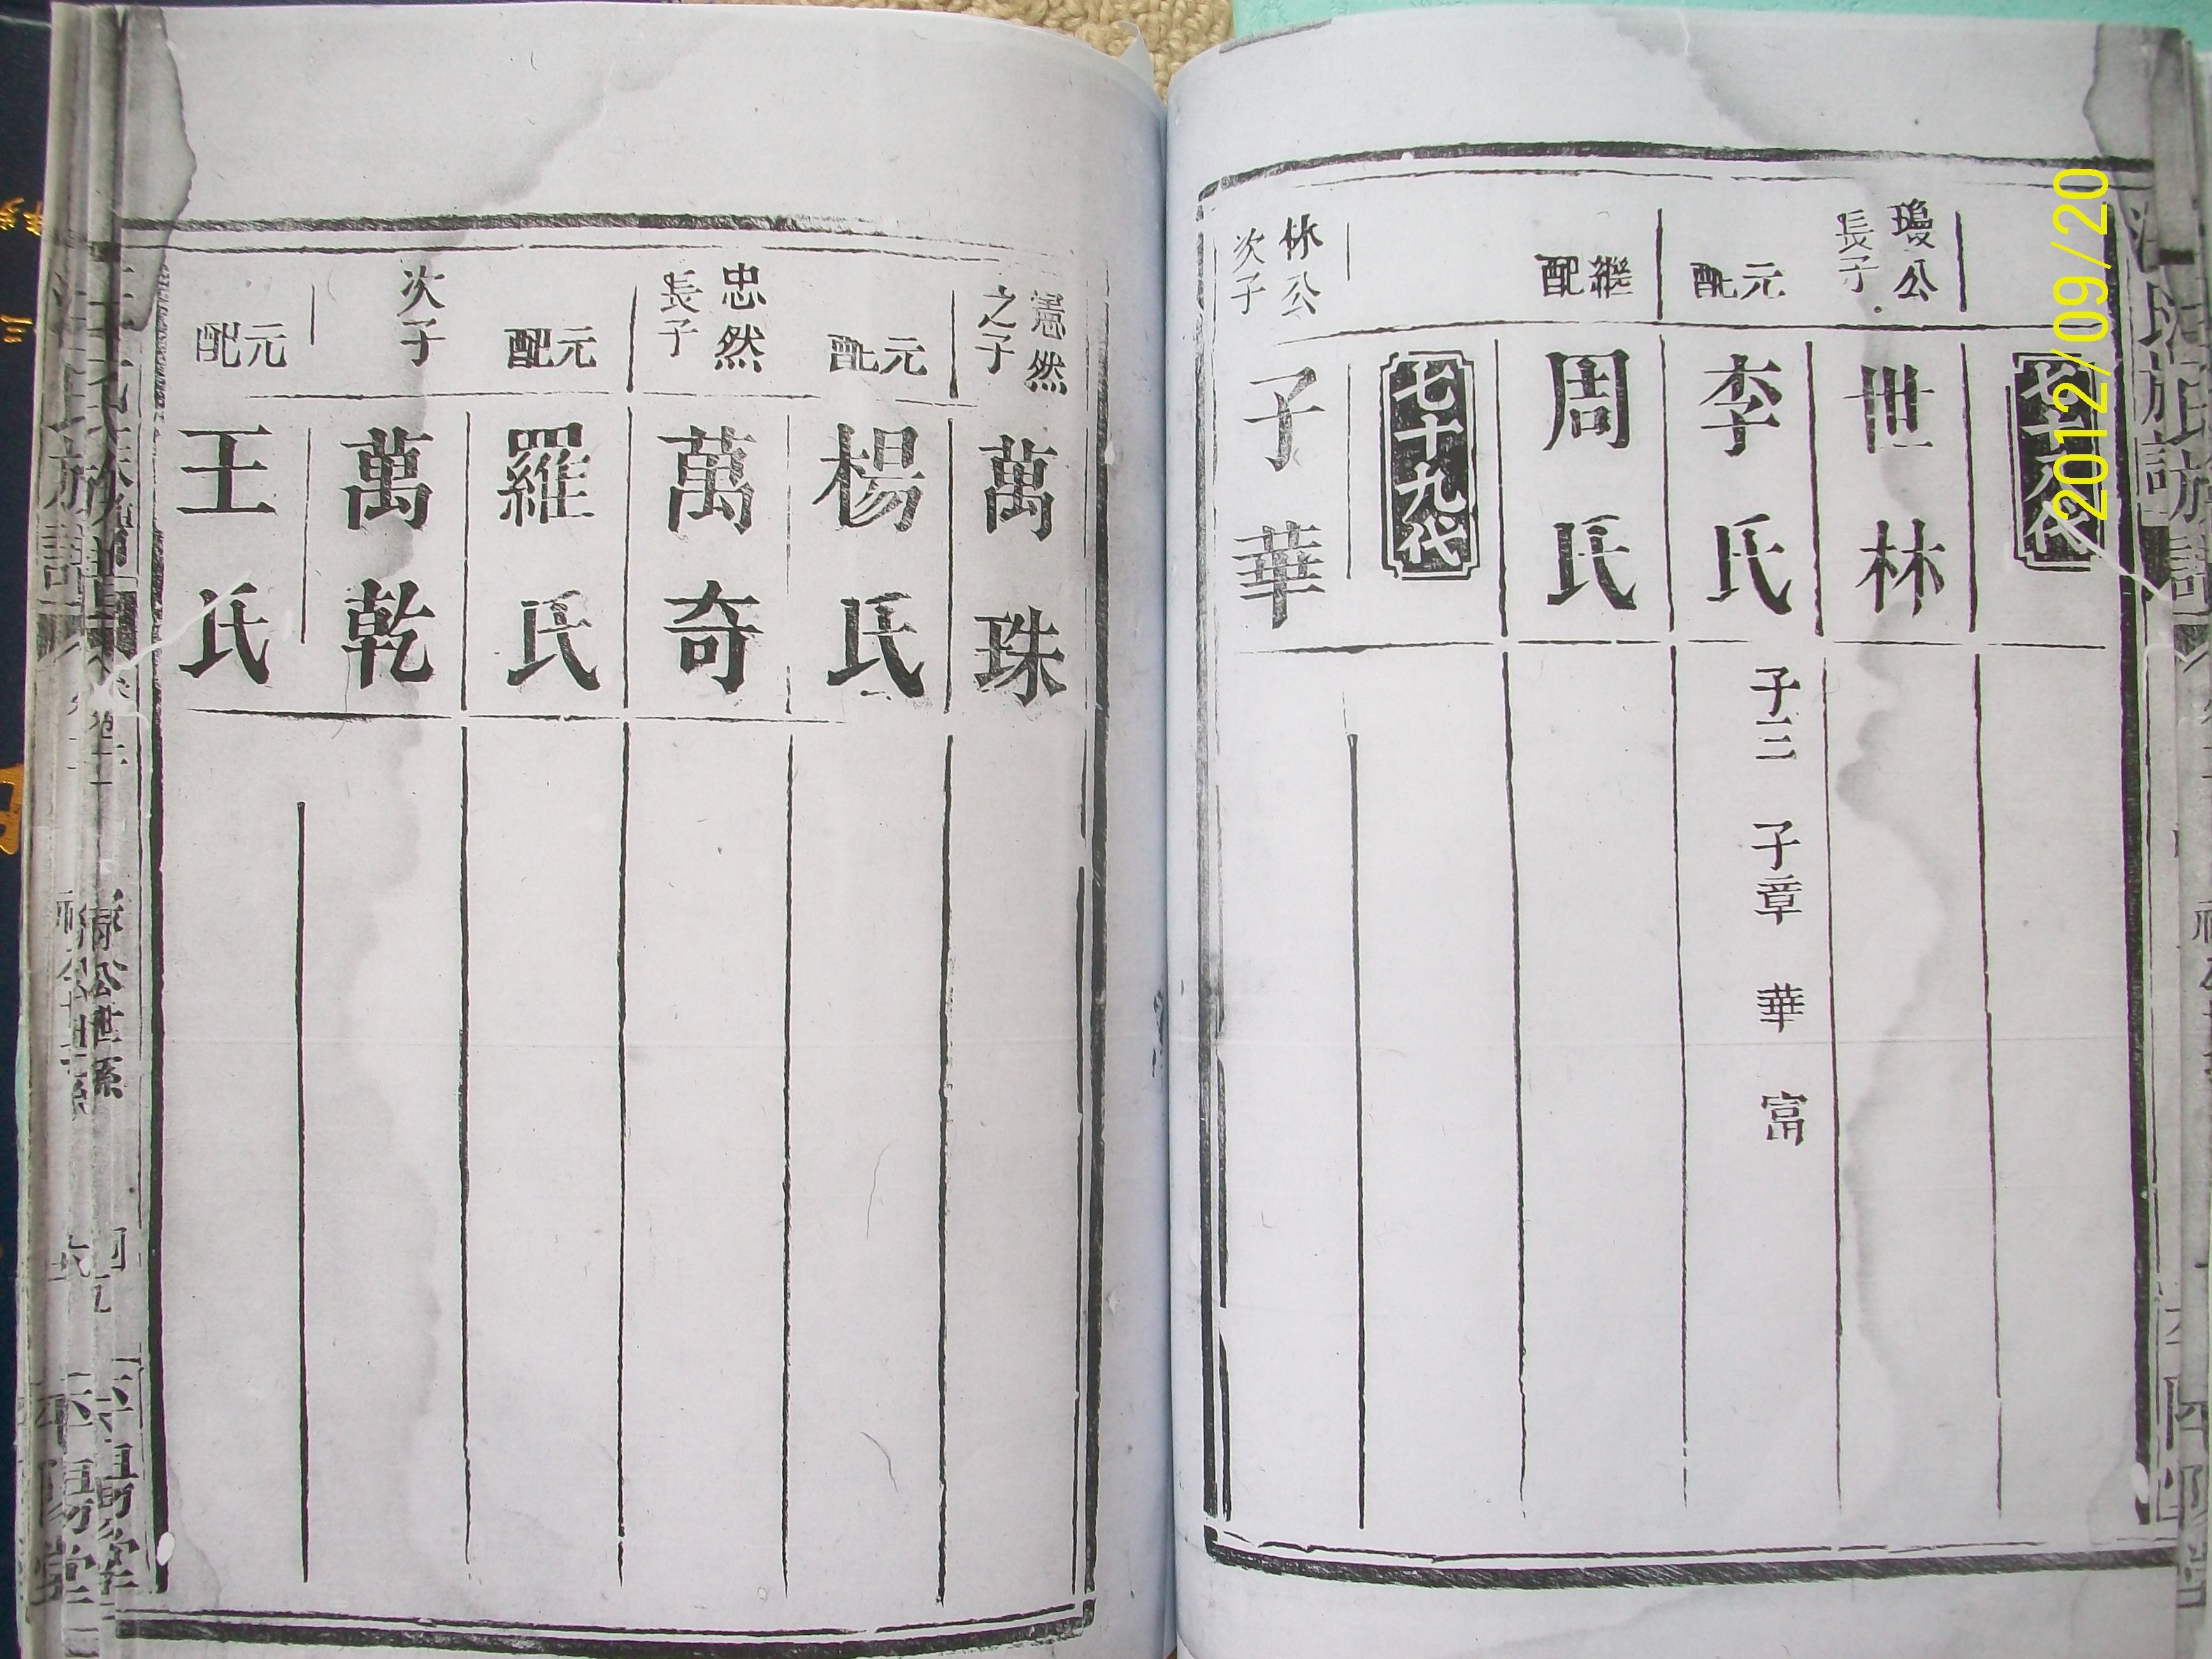 七十八代
瓊公
長子
世林
元配
李氏
子三 子章 華 富
繼配
周氏
七十九代
休公
次子
子華
憲然
之子
萬珠
元配
楊氏
忠然
長子
萬奇
元配
羅氏
次子
萬乾
元配
王氏
2012/09/20